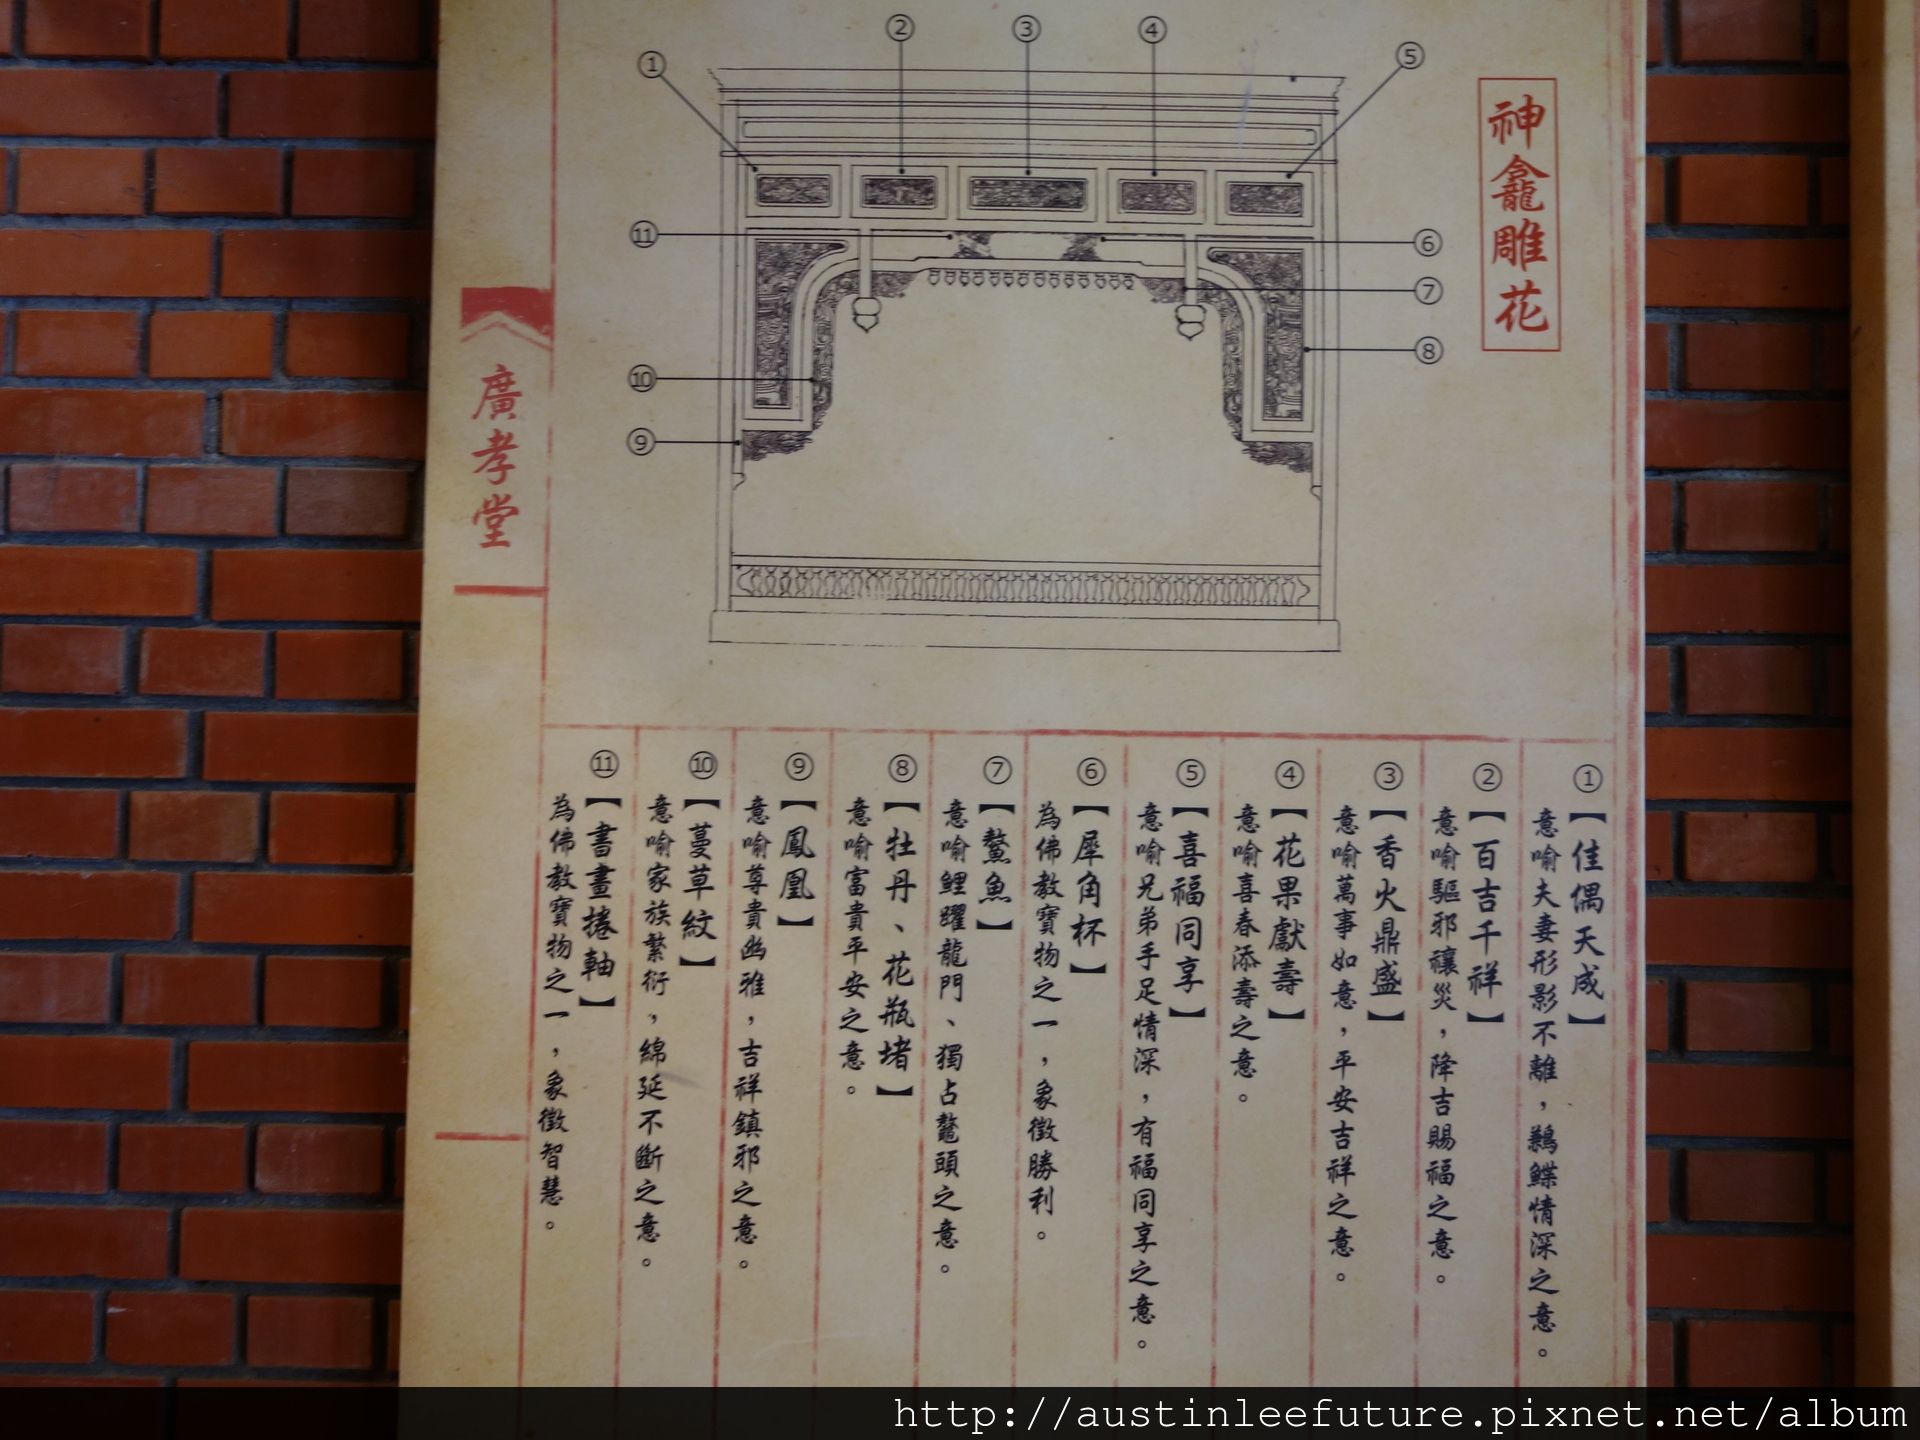 神龕雕花
①
②
③
④
⑤
⑪
⑥
⑦
⑧
⑩
⑨
①【佳偶天成】
意喻夫妻形影不離，鶼鰈情深之意。
②【百吉千祥】
意喻驅邪禳災，降吉賜福之意。
③【香火鼎盛】
意喻萬事如意，平安吉祥之意。
④【花果獻壽】
意喻喜春添壽之意。
⑤【喜福同享】
意喻兄弟手足情深，有福同享之意。
⑥【犀角杯】
為佛教寶物之一，象徵勝利。
⑦【鰲魚】
意喻鯉躍龍門、獨占鰲頭之意。
⑧【牡丹、花瓶堵】
意喻富貴平安之意。
⑨【鳳凰】
意喻尊貴幽雅，吉祥鎮邪之意。
⑩【蔓草紋】
意喻家族繁衍，綿延不斷之意。
⑪【書畫捲軸】
為佛教寶物之一，象徵智慧。
廣孝堂
http://austinleefuture.pixnet.net/album